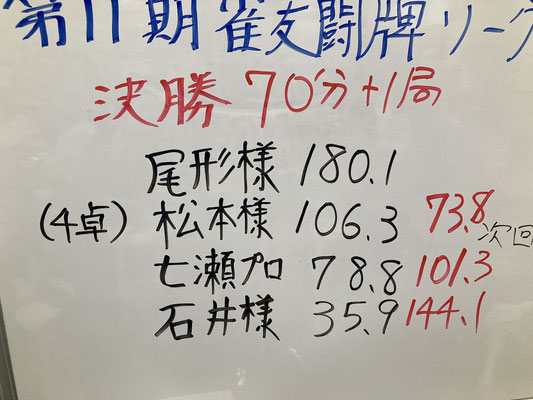 第11期雀友闘牌リーグ
決勝 70分+1局
尾形様 180.1
(4卓) 松本様 106.3 73.8 次回
七瀬プロ 78.8 101.3
石井様 35.9 144.1